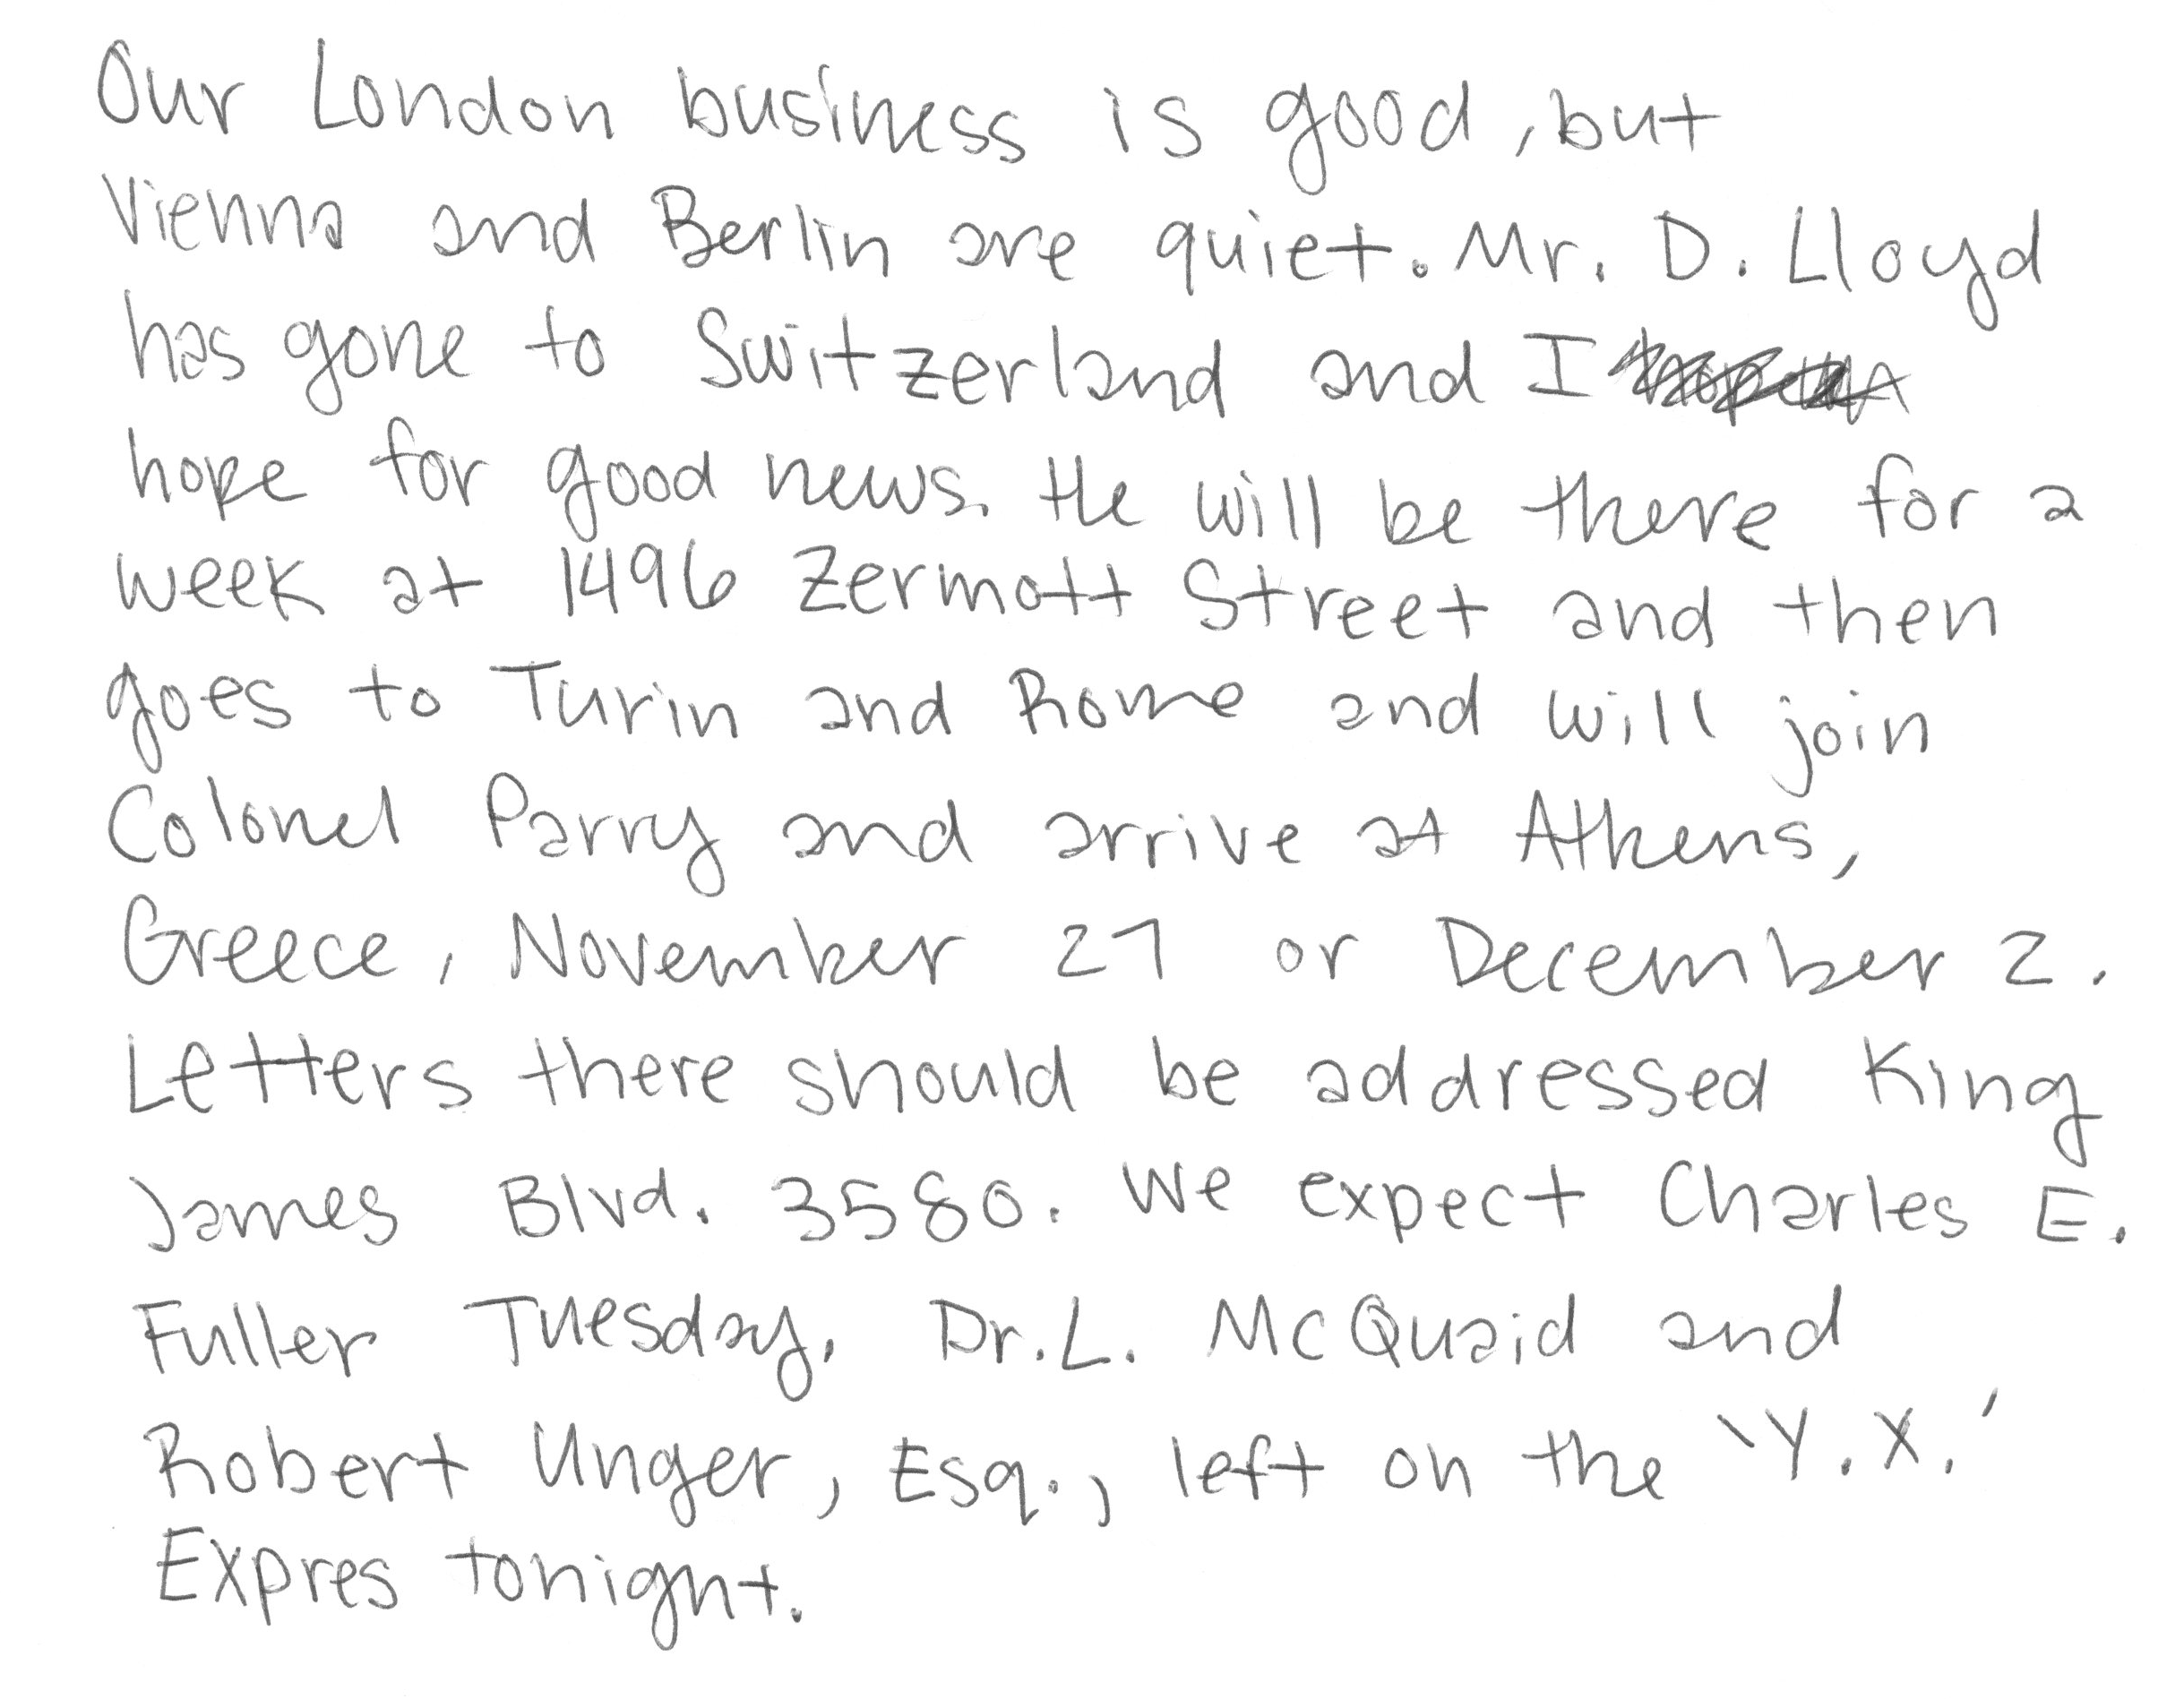 Our London business is good, but
Vienna and Berlin are quiet. Mr. D. Lloyd
has gone to Switzerland and I
hope for good news. He will be there for a
week at 1496 Zermott Street and then
goes to Turin and Rome and will join
Colonel Parry and arrive at Athens,
Greece, November 27 or December 2.
Letters there should be addressed King
James Blvd. 3580. We expect Charles E.
Fuller Tuesday. Dr. L. McQuaid and
Robert Unger, Esq., left on the 'Y.X.'
Expres tonight.